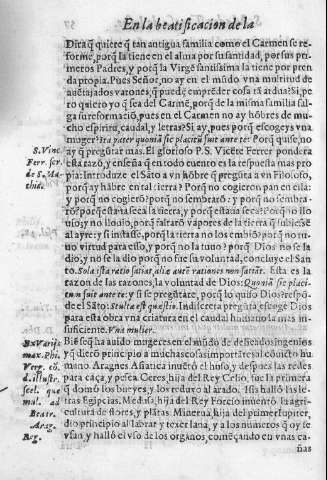 En la beatificacion de la
Dirá q̃ quiere q̃ tan antigua familia como el Carmen se re-
forme, porq̃ la tiene en el alma por su santidad, por sus pri-
meros Padres, y porq̃ la Virgē santissima la tiene por pren
da propia. Pues Señor, no ay en el mũdo vna multitud de
auētajados varones, q̃ puedē emprēder cosa tā ardua? Si, pe
ro quiero yo q̃ sea del Carmē, porq̃ de la misma familia sal-
ga su reformació, pues en el Carmen no ay hōbres de mu-
cho espiritu, caudal, y letras? Si ay, pues porq̃ escogeys vna
muger? Ita pater quoniā sic placitũ fuit ante te: Porq̃ quise, no
ay q̃ pregũtar mas. El glorioso P. S. Vicēte Ferrer pondera
S. Vinc.
esta razō, y enseña q̃ en todo cuento es la respuesta mas pro
Ferr. ser.
pia: Introduze el Sāto a vn hōbre q̃ pregũta a vn Filosofo,
de S. Ma
porq̃ ay hābre en tal tierra? Porq̃ no cogieron pan en ella:
thia.
y porq̃ no cogierō? porq̃ no sembrarō: y porq̃ no sembra-
rō? porq̃ estaua seca la tierra, y porq̃ estaua seca? Porq̃ no llo
uio; y no llouio, porq̃ faltarō vapores de la tierra q̃ subiessē
al ayre; y si instasse, porq̃ la tierra no los embió? porq̃ no tu-
uo virtud para esso, y porq̃ no la tuuo? porq̃ Dios no se la
dio, y no se la dio porq̃ no fue su voluntad, concluye el San
to. Sola ista ratio satiat, aliæ autē rationes non satiāt. Esta es la
razon de las razones, la voluntad de Dios: Quoniā sic placi-
tum fuit ante te: y si te pregũtare, porq̃ lo quiso Dios? respō-
de el Sāto: Stulta est quæstio. Indiscreta pregũta, escuge Dios
para esta obra vna criatura en el caudal humano la mas in-
suficiente. Vna mulier.
Bié se q̃ ha auido mugeres en el mũdo de delicados ingenios
Ex Varijs
y q̃ dierō principio a muchas cosas importātes al cōuicto hu
max. Phi
mano. Aragnes Asiatica inuētó el huso, y despues las redes
Verg. cō
para caça y pesca. Ceres, hija del Rey Celio, fue la primera
d. illustr.
q̃ domó los bueyes, y los reduxo al arado. Isis halló las le-
scel. que
tras Egipcias. Medusa, hija del Rey Forcio inuentó la agri
mal. ad
cultura de flores, y plātas. Minerua, hija del primer Iupiter,
Beatr.
dio principio al labrar y texer lana, y a los numeros q̃ oy se
Arag.
vsan, y halló el vso de los organos, començando en vnas ca-
Reg.
ñas